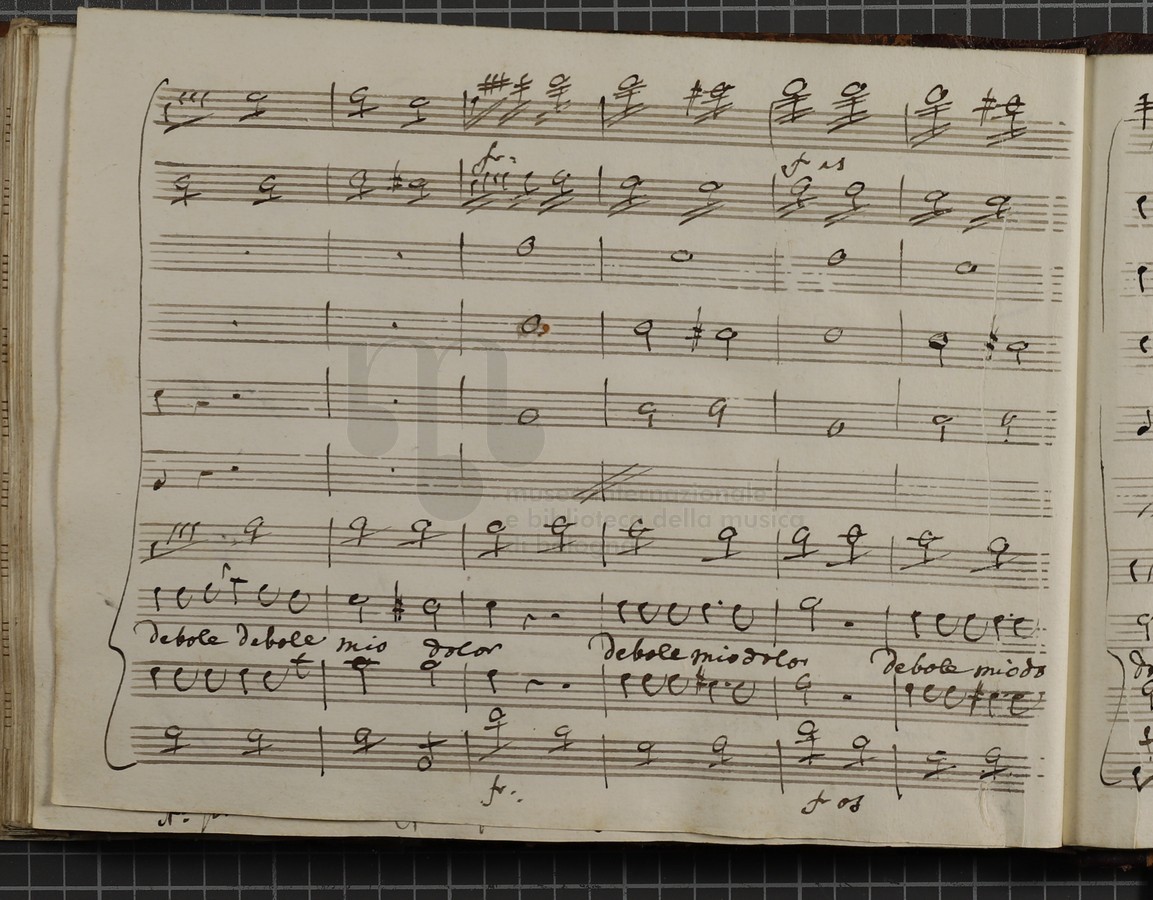 fr:
f as
museo internazionale
e biblioteca della musica
di bologna
debole debole mio dolor debole mio dolor debole mio do
fr:
f as